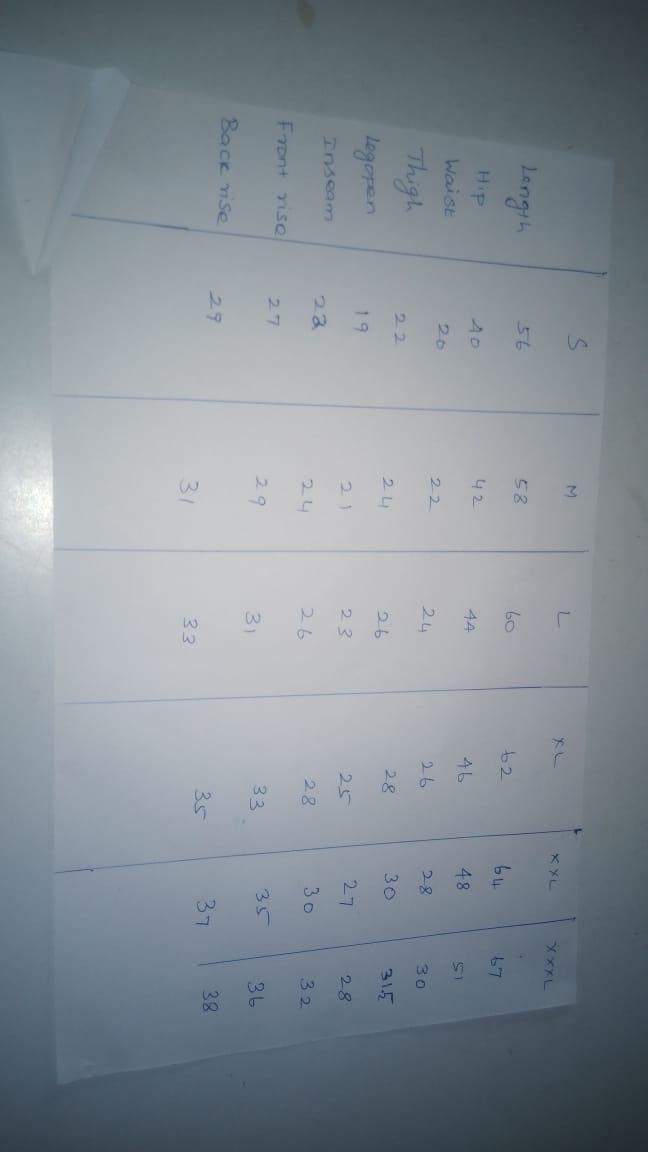 S M L XL XXL XXXL
Length 56 58 60 62 64 67
Hip 40 42 44 46 48 51
Waist 20 22 24 26 28 30
Thigh 22 24 26 28 30 31.5
Legopen 19 21 23 25 27 28
Inseam 22 24 26 28 30 32
Front rise 27 29 31 33 35 36
Back rise 29 31 33 35 37 38